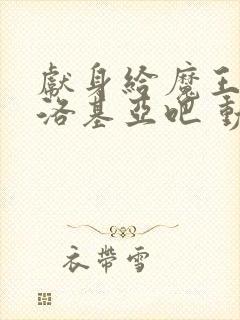 獻身給魔王
洛基亞吧 動
衣帶雪